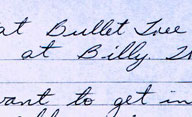 at Bullet Tree
at Billy.
want to get in